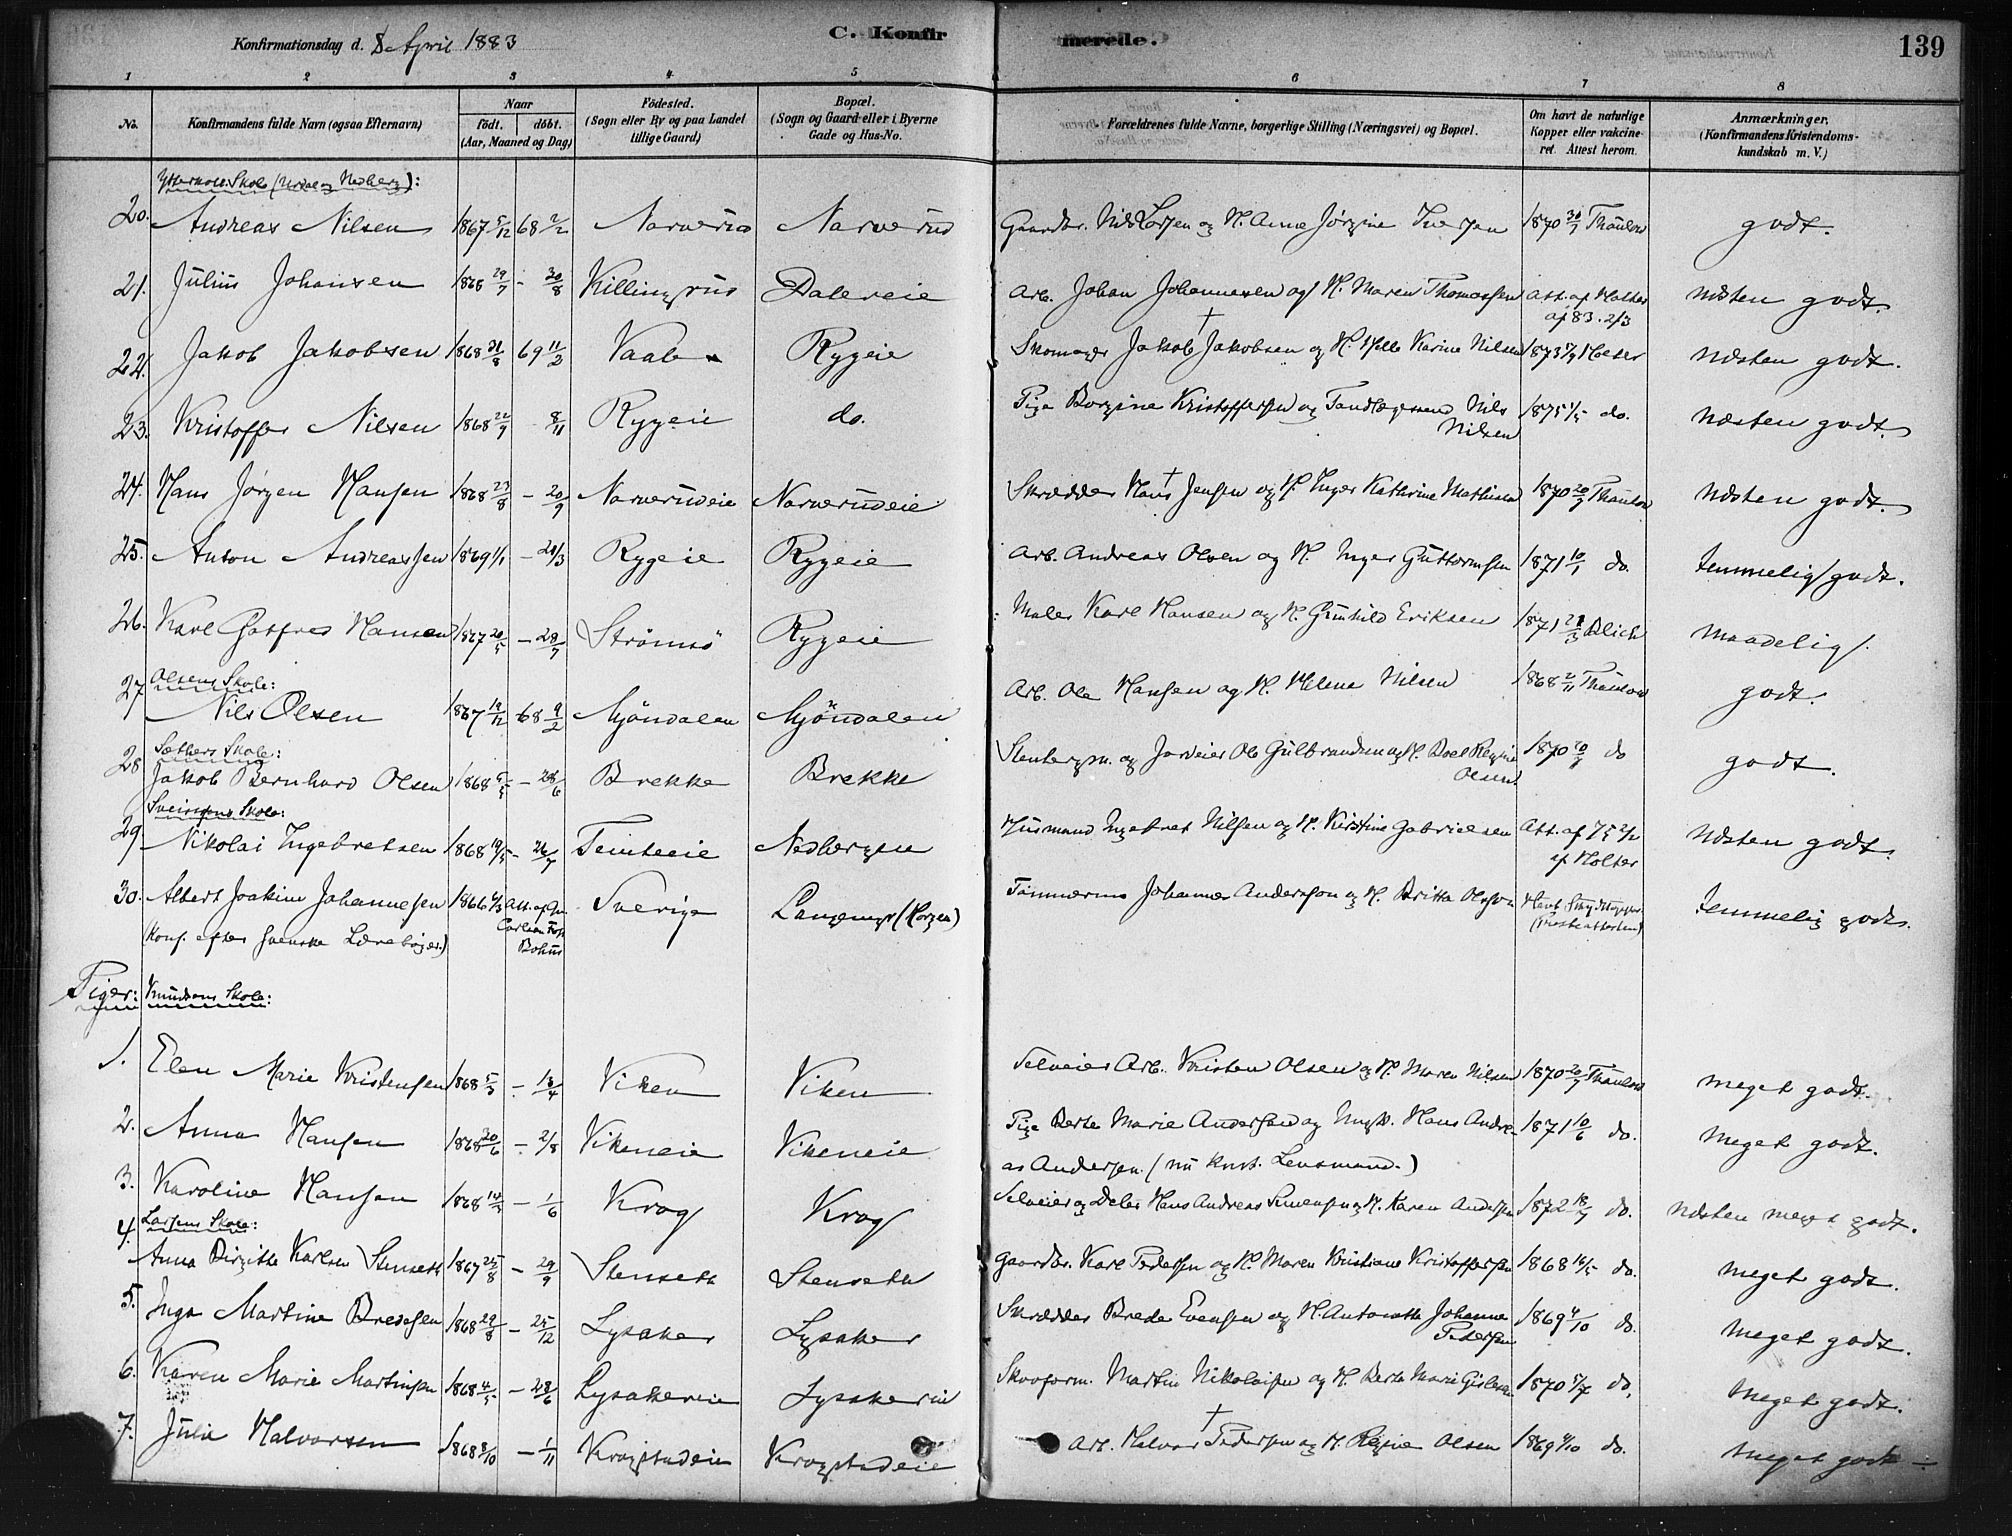 Konfirmationsdag d. 8 April 1883 C. Konfirmerede. 139
1 2 3 4 5 6 7 8
No. Konfirmandens fulde Navn (ogsaa Efternavn) Naar födt. döbt. (Aar, Maaned og Dag) Födested. (Sogn eller By og paa Landet tillige Gaard) Bopæl. (Sogn og Gaard eller i Byerne Gade og Hus-No. Forældrenes fulde Navne, borgerlige Stilling (Næringsvei) og Bopæl. Om havt de naturlige Kopper eller vakcineret. Attest herom. Anmærkninger. (Konfirmandens Kristendomskundskab m. V.)
20. Andreas Nilsen 1867 5/12 68 2/2 Narverud Narverud Gaardbr. Nils Larsen og H. Anne Jörgine Iversen 1870 30/7 Thaulow godt.
21. Julius Johansen 1868 29/7 – 30/8 Killingrud Dalereie Arb. Johan Johannesen og H. Maren Thomassen Att. af Holter af 83. 2/3 næsten godt.
22. Jakob Jakobsen 1868 31/8 69 11/2 Vaale Rygeie Skomager Jakob † Jakobsen og H. Karine Nilsen 1873 Holter næsten godt.
23. Kristoffer Nilsen 1868 22/9 8/11 Rygeie do. Pige Borgine Kristoffersen og Nils Nilsen 1875 1/5 do. næsten godt.
24. Hans Jörgen Hansen 1868 23/8 – 20/9 Narverudeie Narverudeie Skrædder Hans † Jensen og H. Inger Kathrine Mathisen 1870 20/7 Thaulow næsten godt.
25. Anton Andreassen 1869 1/1 – 21/3 Rygeie Rygeie Arb. Andreas Olsen og H. Inger Guttormsen 1871 10/1 do. temmelig godt.
26. Karl Gotfred Hansen 1867 20/5 – 28/7 Strömsö Rygeie Maler Karl Hansen og H. Gunhild Eriksen 1871 21/3 Blich maadelig.
Olsens Skole:
27 Nils Olsen 1867 19/12 68 9/2 Mjöndalen Mjöndalen Arb. Ole Hansen og H. Helene Nilsen 1868 2/11 Thaulow godt.
Sæthers Skole:
28 Jakob Bernhard Olsen 1868 5/5 – 28/6 Brekke Brekke og Jordeier Ole Gulbrandsen og H. Olsen 1870 do godt.
Skole:
29. Nikolai Ingebretsen 1868 19/5 – 26/7 Teinteeie Nedbergeie Husmand Ingebret Nilsen og H. Kirstine Gabrielsen Att. af 75 af Holter næsten godt.
30. Albert Joakim Johannesen 1866 6/3 Att. af Bohus Sverige (Horgen) Tömmermd Johannes Andersson og H. Britta Olsson Havt (Presteattesten) temmelig godt.
(Konf. efter svenske Lærebøger.)
Piger: Knudsens Skole:
1. Elen Marie Kristensen 1868 5/3 – 13/4 Viken Viken Selveier Arb. Kristen Olsen og H. Maren Nilsen 1870 20/7 Thaulow meget godt.
2. Anna Hansen 1868 30/6 – 2/8 Vikeneie Vikeneie Pige Berte Marie Andersen og Ungk. Hans Andre- 1871 10/6 do. meget godt.
as Andersen. (nu knst. Lensmand.)
3. Karoline Hansen 1868 14/5 – 1/6 Krog Krog Selveier og Deler Hans Andreas Simensen og H. Karen Andersen 1872 18/7 do. næsten meget godt.
Larsens Skole:
4. Anna Birgitte Karlsen Stenseth 1867 25/8 – 29/9 Stenseth Stenseth Gaardbr. Karl Pedersen og H. Maren Kristiane Kristoffersen 1868 16/5 do. meget godt.
5. Inga Martine Bredesen 1868 29/8 – 25/12 Lysaker Lysaker Skrædder Brede Evensen og H. Antonette Johanne Pedersen 1869 4/10 do. meget godt.
6. Karen Marie Martinsen 1868 4/5 – 28/6 Lysakereie Lysakereie Skovform. Martin Nikolaisen og H. Berte Marie Gislesen 1870 5/7 do. meget godt.
7. Julie Halvorsen 1868 8/10 – 1/11 Krogstadeie Krogstadeie Arb. Halvor † Pedersen og H. Regine Olsen 1869 4/10 do. meget godt –